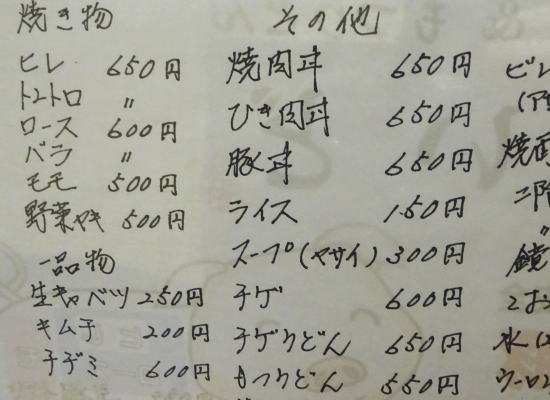 焼き物
ヒレ 650円
トントロ 〃
ロース 600円
バラ 〃
モモ 500円
野菜ヤキ 500円
一品物
生キャベツ 250円
キムチ 200円
チヂミ 600円
その他
焼肉丼 650円
ひき肉丼 650円
豚丼 650円
ライス 150円
スープ(ヤサイ) 300円
チゲ 600円
チゲうどん 650円
もつうどん 550円
ビレ
焼
鏡
水
ウーロ